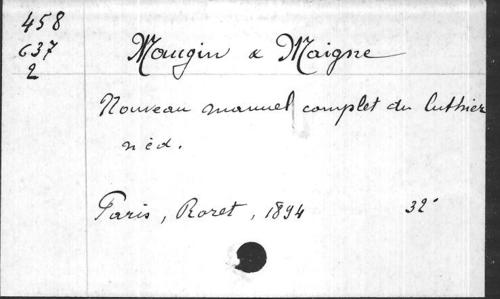 458
637
2
Maugin & Maigne
Nouveau manuel complet du luthier
n éd.
Paris, Roret, 1894 32°